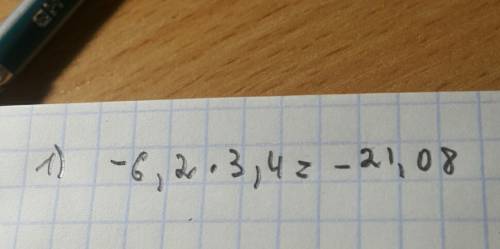 HB
1) -6,2 · 3,4 = -21,08